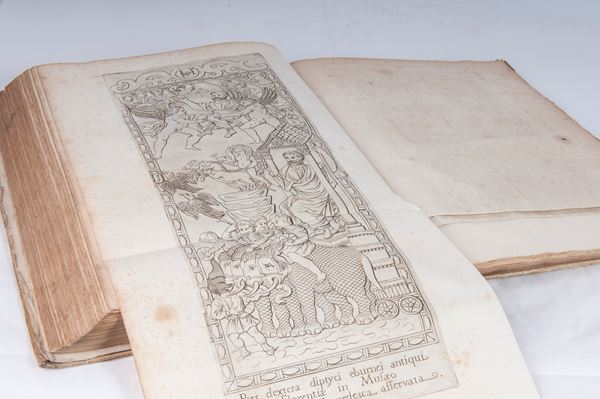 Pars dextera diptyci eburnei antiqui
Florentiæ in Musæo
asservata